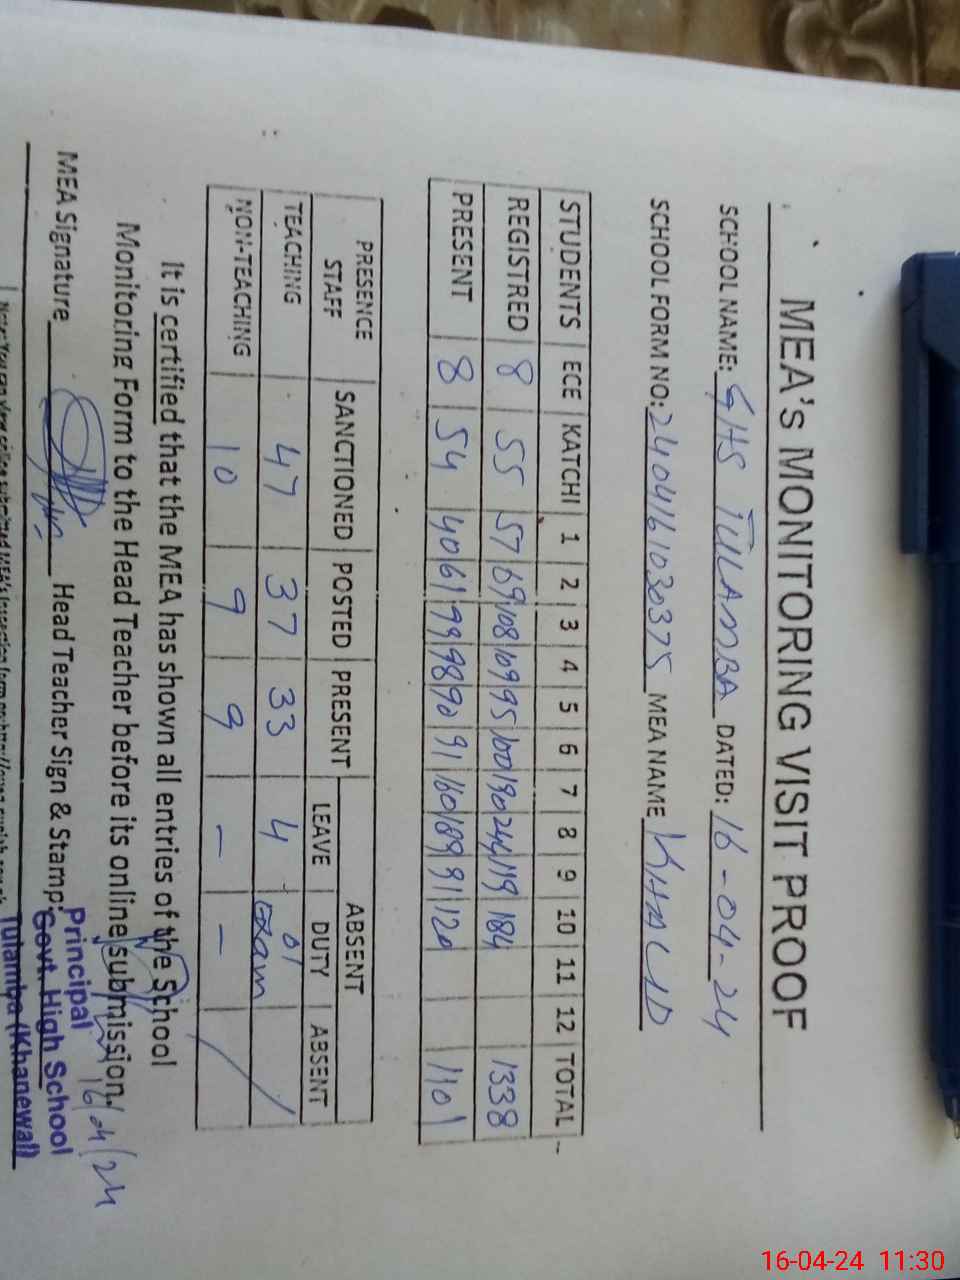 MEA's MONITORING VISIT PROOF
SCHOOL NAME: GHS TULAMBA DATED: 16-04-24
SCHOOL FORM NO: 2404161030375 MEA NAME KHALID
STUDENTS ECE KATCHI 1 2 3 4 5 6 7 8 9 10 11 12 TOTAL
REGISTRED 8 55 57 69 108 109 95 100 190 244 119 184 1338
PRESENT 8 54 40 61 99 98 90 91 160 189 91 120 1101
PRESENCE STAFF SANCTIONED POSTED PRESENT ABSENT
LEAVE DUTY ABSENT
TEACHING 47 37 33 4 01 Exam
NON-TEACHING 10 9 9 - -
It is certified that the MEA has shown all entries of the School
Monitoring Form to the Head Teacher before its online submission.
MEA Signature Head Teacher Sign & Stamp:
16/04/24
Principal
Govt. High School
Tulamba (Khanewal)
16-04-24 11:30